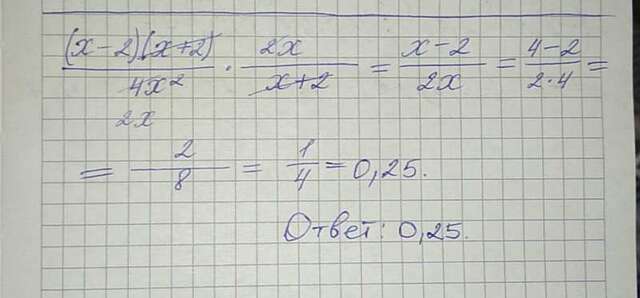 (x-2)(x+2)/4x² · 2x/x+2 = x-2/2x = 4-2/2·4 =
2x
= 2/8 = 1/4 = 0,25.
Ответ: 0,25.